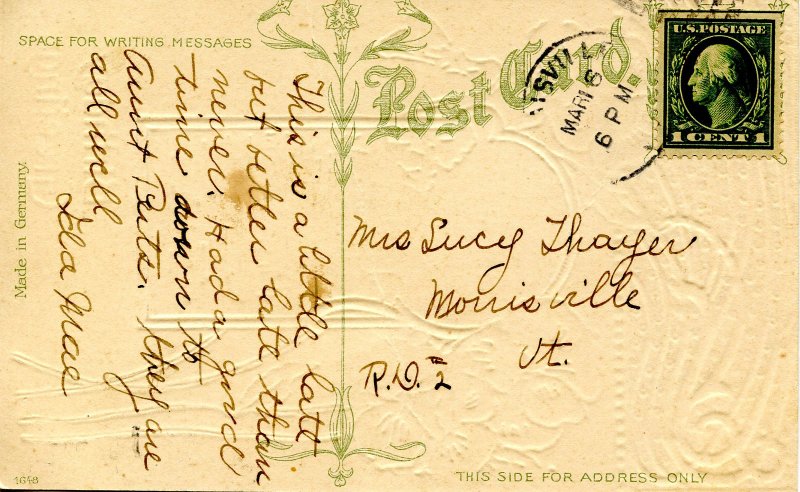 SPACE FOR WRITING MESSAGES
Post Card.
This is a little late
but better late than
never. Had a good
time down to
Aunt Perts. they are
all well
Ida Mae
Made in Germany.
1648
SVILL
MAR 16
6 PM
U.S. POSTAGE
1 CENT 1
Mrs Lucy Thayer
Morrisville
Vt.
R.D. #2
THIS SIDE FOR ADDRESS ONLY